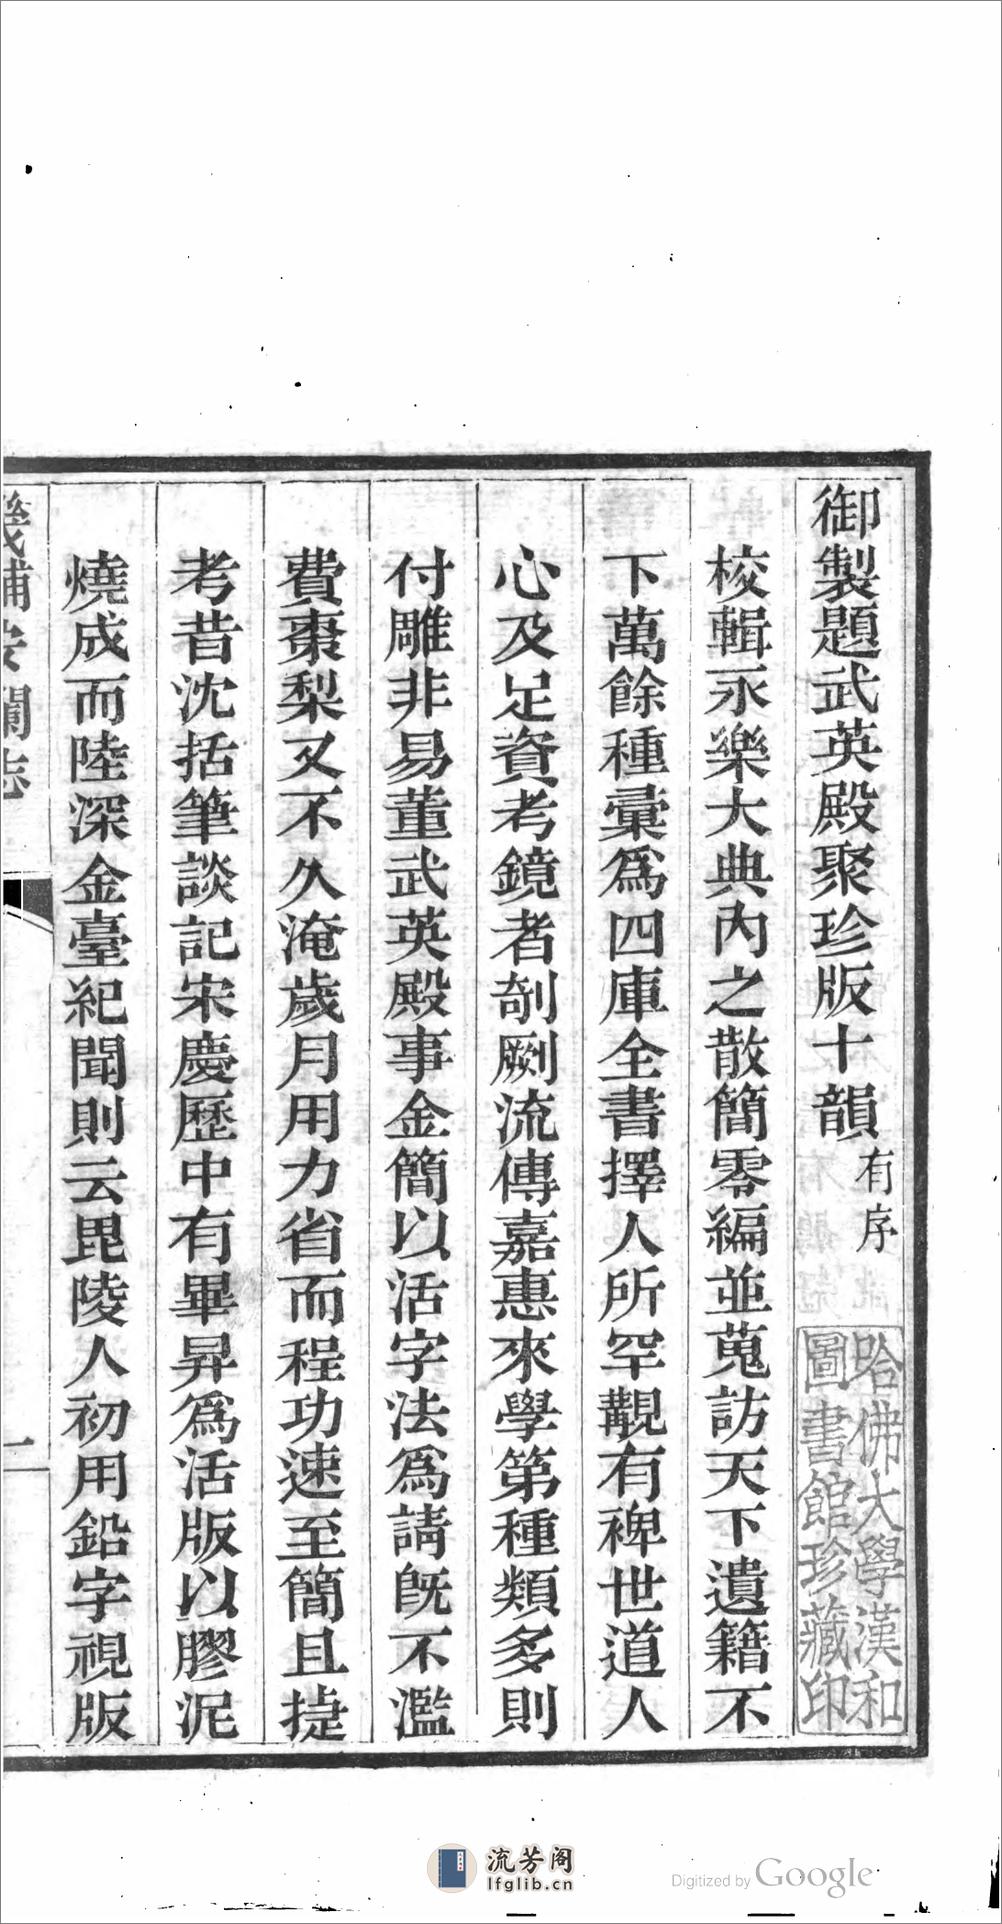 御製題武英殿聚珍版十韻 有序
校輯永樂大典內之散簡零編並蒐訪天下遺籍不
下萬餘種彙爲四庫全書擇人所罕覯有裨世道人
心及足資考鏡者剞劂流傳嘉惠來學第種類多則
付雕非易董武英殿事金簡以活字法爲請旣不濫
費棗梨又不久淹歲月用力省而程功速至簡且捷
考昔沈括筆談記宋慶歷中有畢昇爲活版以膠泥
燒成而陸深金臺紀聞則云毘陵人初用鉛字視版
畿輔安瀾志
一
哈佛大學漢和
圖書館珍藏印
流芳阁
lfglib.cn
Digitized by Google